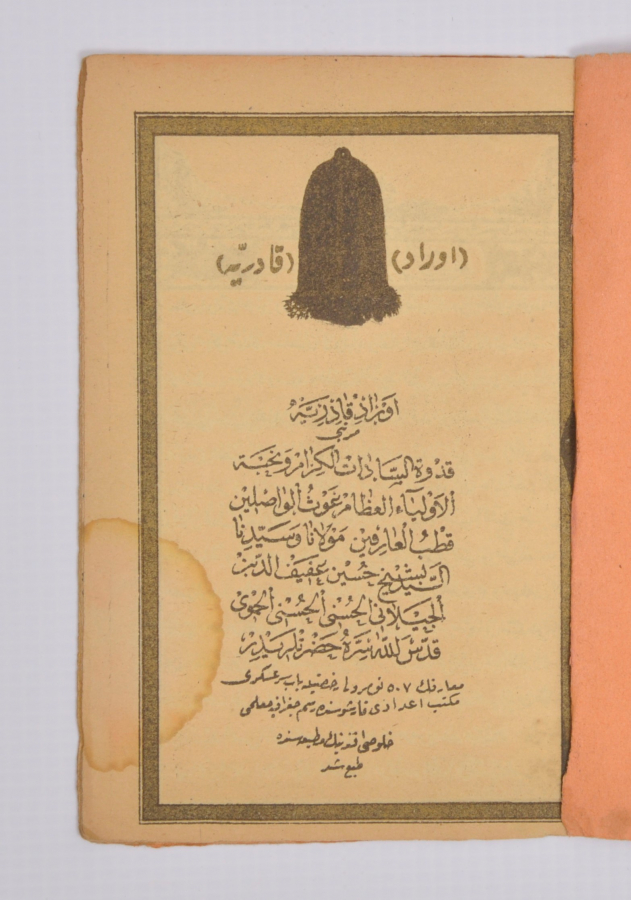 (اوراد) (قادريّه)
اَوْرَادِ قَادِرِيَّهْ
مرتبى
قدوة السّادات الكرام ونخبة
الاولياء العظام غوث الواصلين
قطب العارفين مولانا وسيّدنا
السّيّد الشّيخ حسين عفيف الدّين
الجيلانى الحسنى الحسينى الحموى
قدّس الله سرّه حضرتلريدر
معارفك ٥٠٧ نومرولى رخصتيله باب سرعسكرى
مكتب اعدادى قارشوسنده رسم جغرافيه معلمى
خلوصى افندينك مطبعه سنده
طبع شد